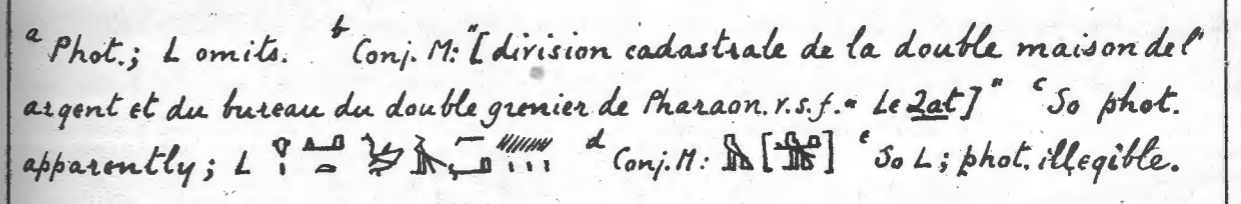 a Phot.; L omits. b Conj. M: "[division cadastrale de la double maison de l'
argent et du bureau du double grenier de Pharaon. v.s.f. " Le Zat]" c So phot.
apparently; L d Conj. M: [ ] e So L; phot. illegible.